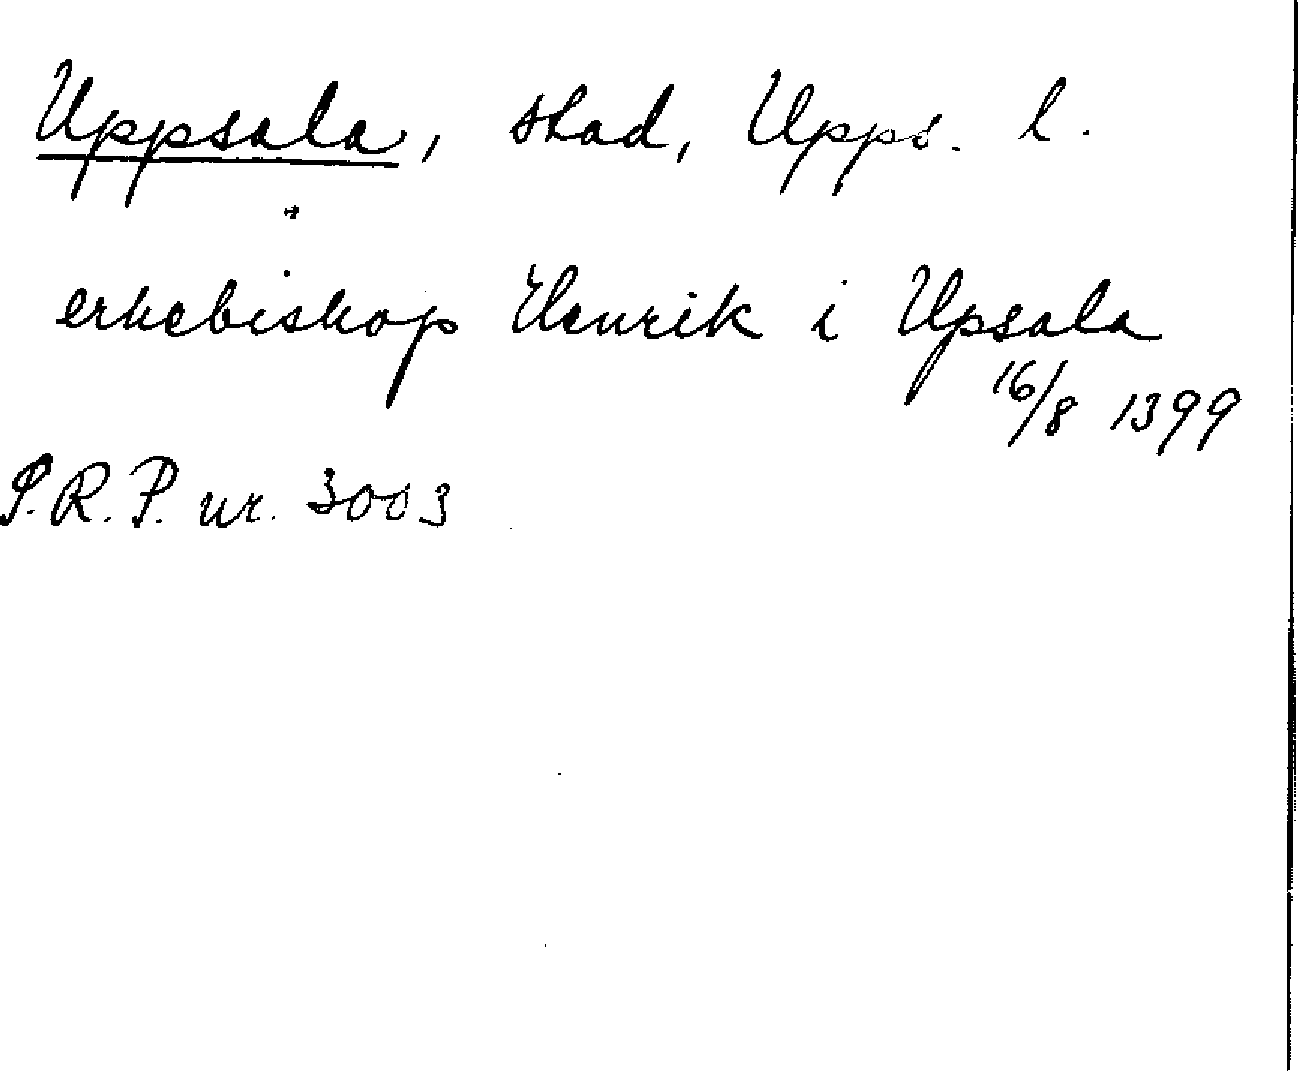 Uppsala, stad, Upps. l.
erkebiskop Henrik i Upsala
16/8 1399
P.R.P. nr. 3003